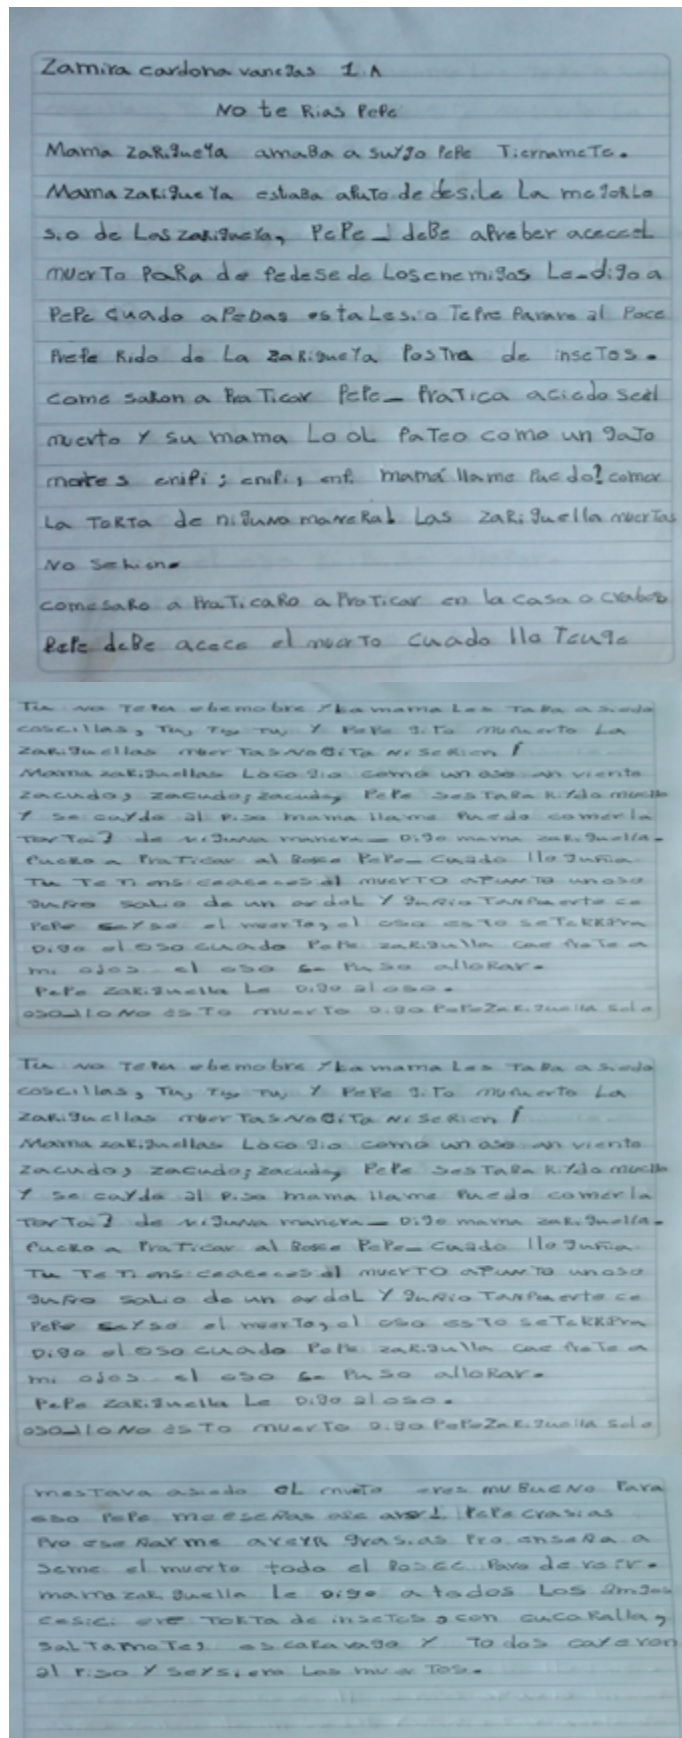 Zamira cardona vanegas 1.A
No te Rias PePe
Mama zaRigueYa amaBa a suygo PePe TiernameTe.
Mama zarigueYa estaBa aPuTo de desile La mejoRLe
sio de Las zarigueya, PePe_ deBe aPreber acecel
muerTo PaRa de fedese de Los enemigos Le_digo a
PePe cuado aPeDas esta Lesio TePre Parare al Poce
Prefe Rido de La zaRigueYa PosTra de inseTos.
come saRon a PraTicar PePe_ PraTica aciedo seel
muerto Y su mama Lo oL faTeo como un gaTo
motes enifi; enifi, enf. mamá llame Puedo? comer
La ToRTa de niguna maneRa! Las zariguella muerTas
No se hien.
comesaRo a PraTicaRo a ProTicar en la casa o
PePe deBe acece el muerTo cuado llo
Tu no TePu ebemobre Y La mama Les TaBa asiedo
coscillas, Tu, Tu, Tu, Y PePe giTo mumerto La
zariguellas muerTas No giTa Ni se Rien!
Mama zariguellas Loco gio como un oso un viento
zacudo, zacudo; zacudo, PePe
Y se caydo al Piso mama llame Puedo comerla
TorTa? de niguna manera_ Digo mama zariguella.
Puero a PraTicar al Bosce PePe_ cuado llo guña
Tu Te Ti ens ceaceces al muerTO aPunTo unoso
guño salio de un ardol Y guñio
PePe se yso el muerTo, el oso esto seTeRRPra
Digo el oso cuado PePe zarigulla cae freTe a
mi ojos el oso se Puso alloRar.
PePe Zariguella Le Digo al oso.
oso_llo No esTo muerTo Digo PePe Zariguella solo
Tu no TePu ebemobre Y La mama Les TaBa asiedo
coscillas, Tu, Tu, Tu, Y PePe giTo mumerto La
zariguellas muerTas No giTa Ni se Rien!
Mama zariguellas Loco gio como un oso un viento
zacudo, zacudo; zacudo, PePe
Y se caydo al Piso mama llame Puedo comerla
TorTa? de niguna manera_ Digo mama zariguella.
Puero a PraTicar al Bosce PePe_ cuado llo guña
Tu Te Ti ens ceaceces al muerTO aPunTo unoso
guño salio de un ardol Y guñio
PePe se yso el muerTo, el oso esto seTeRRPra
Digo el oso cuado PePe zarigulla cae freTe a
mi ojos el oso se Puso alloRar.
PePe Zariguella Le Digo al oso.
oso_llo No esTo muerTo Digo PePe Zariguella solo
mesTava asiedo eL mueTo eres mu BueNo Para
eso PePe me eseñas PePe crasias
Pro eseñarme grasias Pro enseña a
seme el muerto todo el Bosce
mama zariguella le Digo a todos Los amgos
TorTa de inseTos, con cucaRalla,
salTamoTe, escaravago Y Todos cayeron
al Piso Y seysiero Los muerTos.